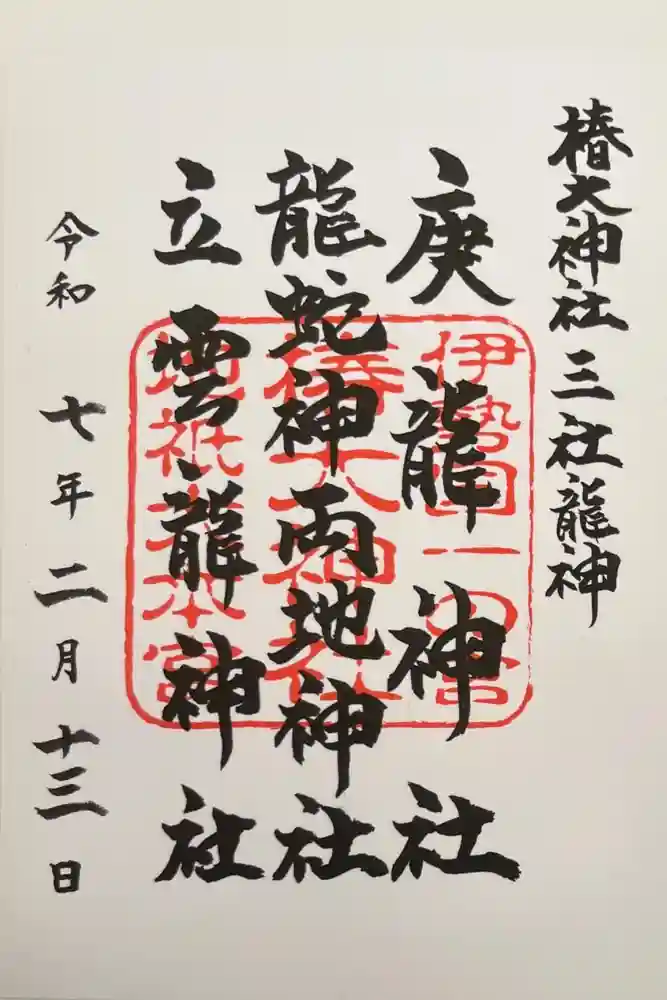 椿大神社三社龍神
庚龍神社
龍蛇神両地神社
立雲龍神社
令和七年二月十三日
伊勢国一の宮
椿大神社
地祇大本宮